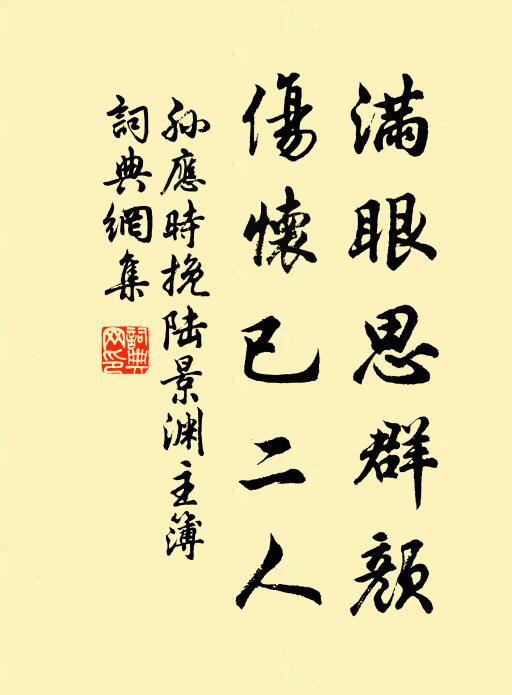 滿眼思群顏
傷懷已二人
孫應時挽陸景淵主簿
詞典網集
詞典網印